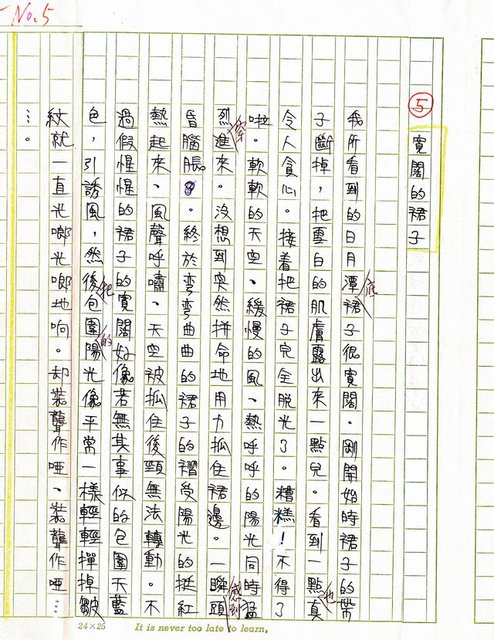 No.5
⑤
寬闊的裙子
我所看到的日月潭底裙子很寬闊。剛開始時裙子的帶
子斷掉，把雪白的肌膚露出來一點兒。看到一點也真
令人貪心。接着把裙子完全脱光了。糟糕！不得了
啦。軟軟的天空、緩慢的風、熱呼呼的陽光同時猛
烈進來。沒想到突然拼命地用力抓住裙邊。一瞬感到頭
昏腦脹。終於彎彎曲曲的裙子的褶受陽光的挺紅
熱起來、風聲呼嘯、天空被抓住後頸無法轉動。不
過假惺惺的裙子的寬闊好像若無其事似的包圍天藍
色，引誘風，然後把包圍的陽光像平常一樣輕輕撣掉皺
紋就一直光啷光啷地响。却裝聾作啞、裝聾作啞…
…。
24×25
It is never too late to learn.